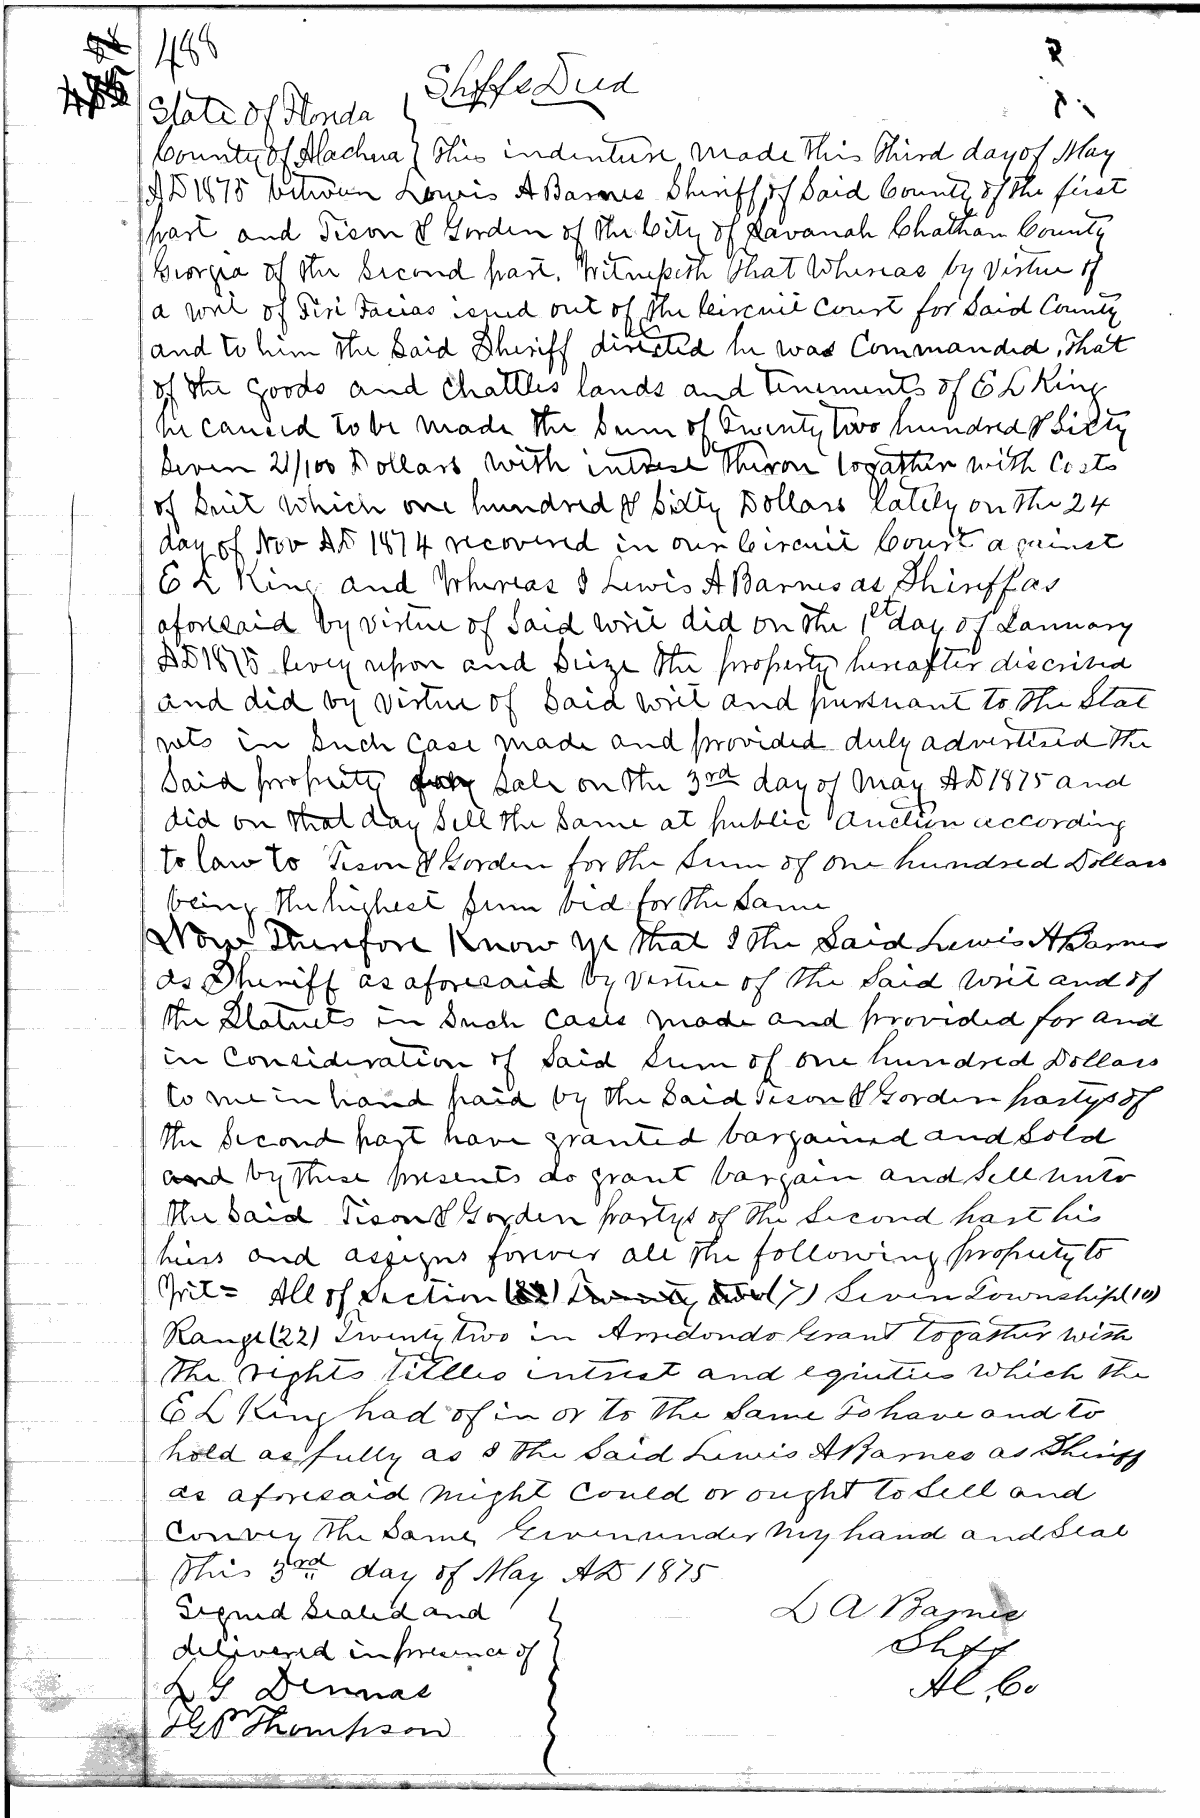 488
Shffs Deed
State of Florida
County of Alachua } This indenture made this Third day of May
AD 1875 between Lewis A Barnes Sheriff of Said County of the first
part and Tison & Gorden of the City of Savanah Chatham County
Georgia of the Second part. Witnesseth That Whereas by Virtue of
a writ of Firi Facias issued out of the Circuit Court for Said County
and to him the Said Sheriff directed he was Commanded, That
of the goods and Chattles lands and tenements of E L King
he caused to be made the Sum of Twenty two hundred & Sixty
Seven 21/100 Dollars with intrest theron togather with Costs
of Suit Which one hundred & Sixty Dollars lately on the 24
day of Nov AD 1874 recovered in our Circuit Court against
E L King and Whereas I Lewis A Barnes as Sheriff as
aforesaid by virtue of Said writ did on the 1st day of January
AD 1875 levey upon and Seize the property hereafter discribed
and did by virtue of Said writ and pursuant to the Stat
uets in Such Case made and provided duly advertised the
Said property for Sale on the 3rd day of May AD 1875 and
did on that day Sell the Same at public Auction according
to law to Tison & Gorden for the Sum of one hundred Dollars
being the highest Sum bid for the Same
Now Therefore Know ye that I the Said Lewis A Barnes
as Sheriff as aforesaid by vertue of the Said writ and of
the Statuets in Such Cases made and provided for and
in Consideration of Said Sum of one hundred Dollars
to me in hand paid by the Said Tison & Gorden partys of
the Second part have granted bargained and Sold
and by these presents do grant bargain and Sell unto
the Said Tison & Gorden partys of the Second part his
heirs and assigns forever all the following property to
Wit = All of Section (22) Twenty two (7) Seven Township (10)
Range (22) Twenty two in Arredondo Grant togather with
the rights titlles intrest and equities which the
E L King had of in or to the Same To have and to
hold as fully as I the Said Lewis A Barnes as Sheriff
as aforesaid might Could or ought to Sell and
Convey the Same, Given under my hand and Seal
this 3rd day of May AD 1875
Signed Sealed and
delivered in presence of
L A Barnes
Shff
Al. Co
L G Dennas
H G P Thompson